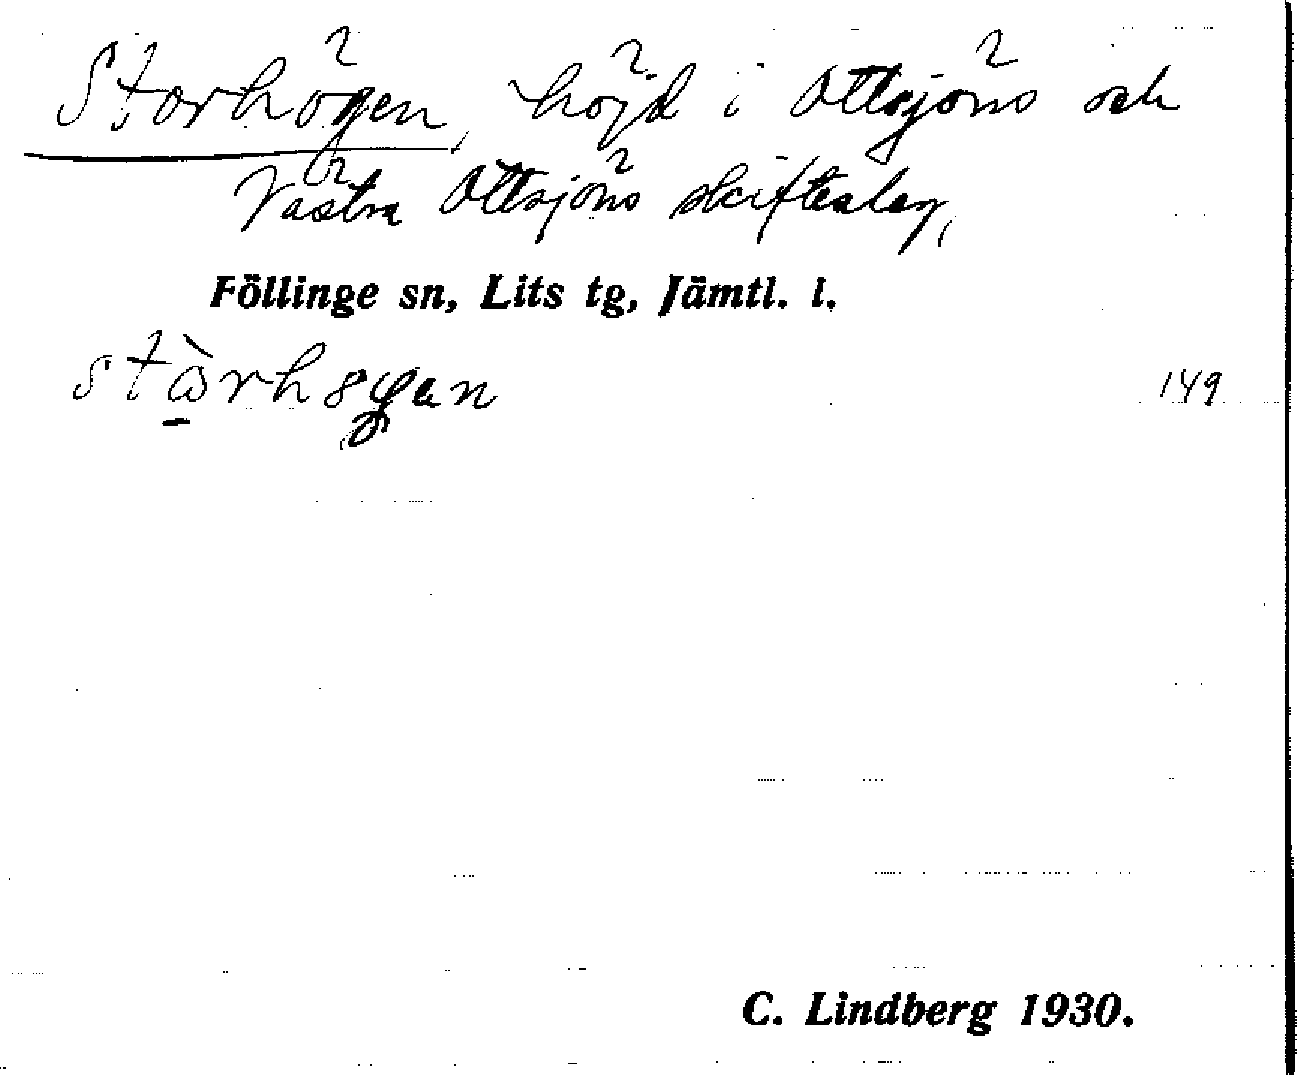 Storhögen, höjd i Ottsjöns och
Västra Ottsjöns skifteslag,
Föllinge sn, Lits tg, Jämtl. l.
149
C. Lindberg 1930.